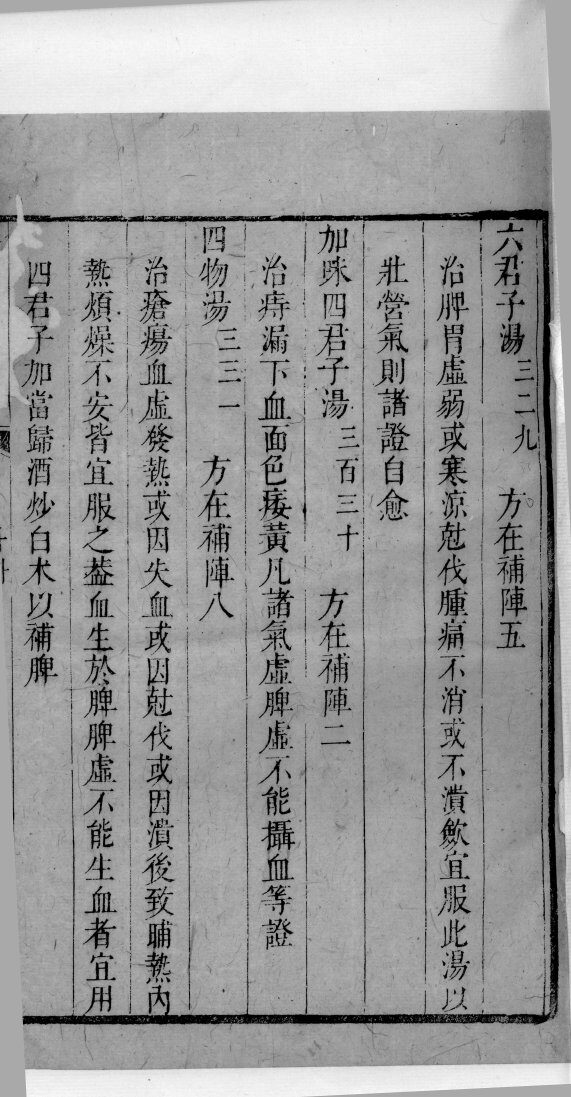 六君子湯三二九 方在補陣五
治脾胃虛弱或寒涼尅伐腫痛不消或不潰斂宜服此湯以
壯營氣則諸證自愈
加味四君子湯三百三十 方在補陣二
治痔漏下血面色痿黃凡諸氣虛脾虛不能攝血等證
四物湯三三一 方在補陣八
治瘡瘍血虛發熱或因失血或因尅伐或因潰後致晡熱內
熱煩燥不安皆宜服之葢血生於脾脾虛不能生血者宜用
四君子加當歸酒炒白朮以補脾